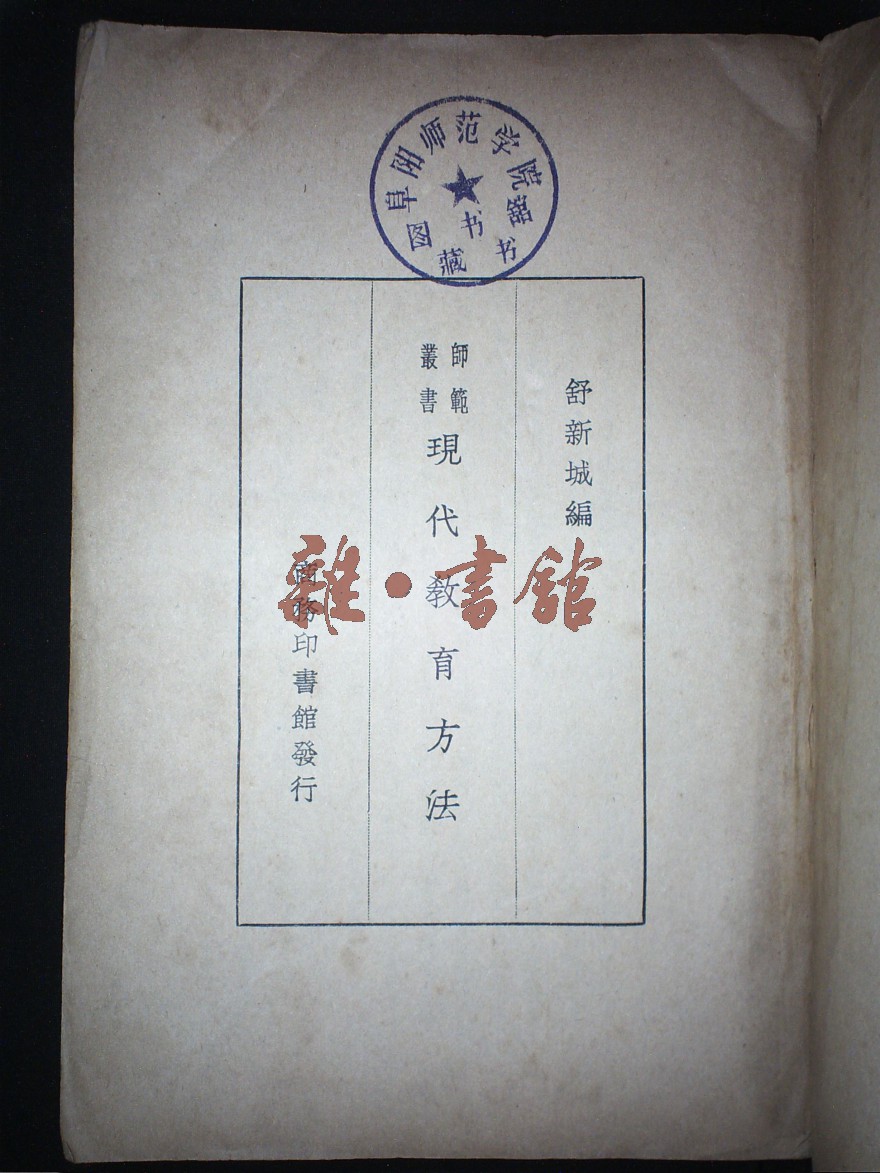 阜阳师范学院
图书馆
藏书
舒新城編
師範
叢書
現代教育方法
商務印書館發行
雜·書館